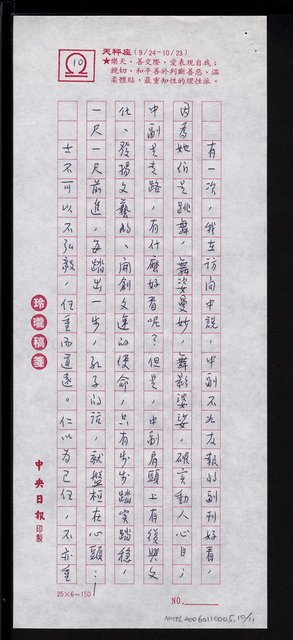 天秤座(9/24-10/23)
★樂天、善交際、愛表現自我;
親切、和平善於判斷善惡、溫
柔體貼,最重知性的理性派。
10
有一次,我在訪問中說,中副不比友報的副刊好看,
因為她們是跳舞,舞姿曼妙,舞影婆娑,確實動人心目;
中副是走路,有什麼好看呢?但是,中副肩頭上有復興文
化、發揚文藝的、開創文運的使命,只有步步踏實踏穩,
一尺一尺前進,每踏出一步,孔子的話,就盤桓在心頭:
士不可以不弘毅,任重而道遠。仁以為己任,不亦重
玲瓏稿箋
中央日報印製
25×6=150
NO.
NMTL20060110005.10/11